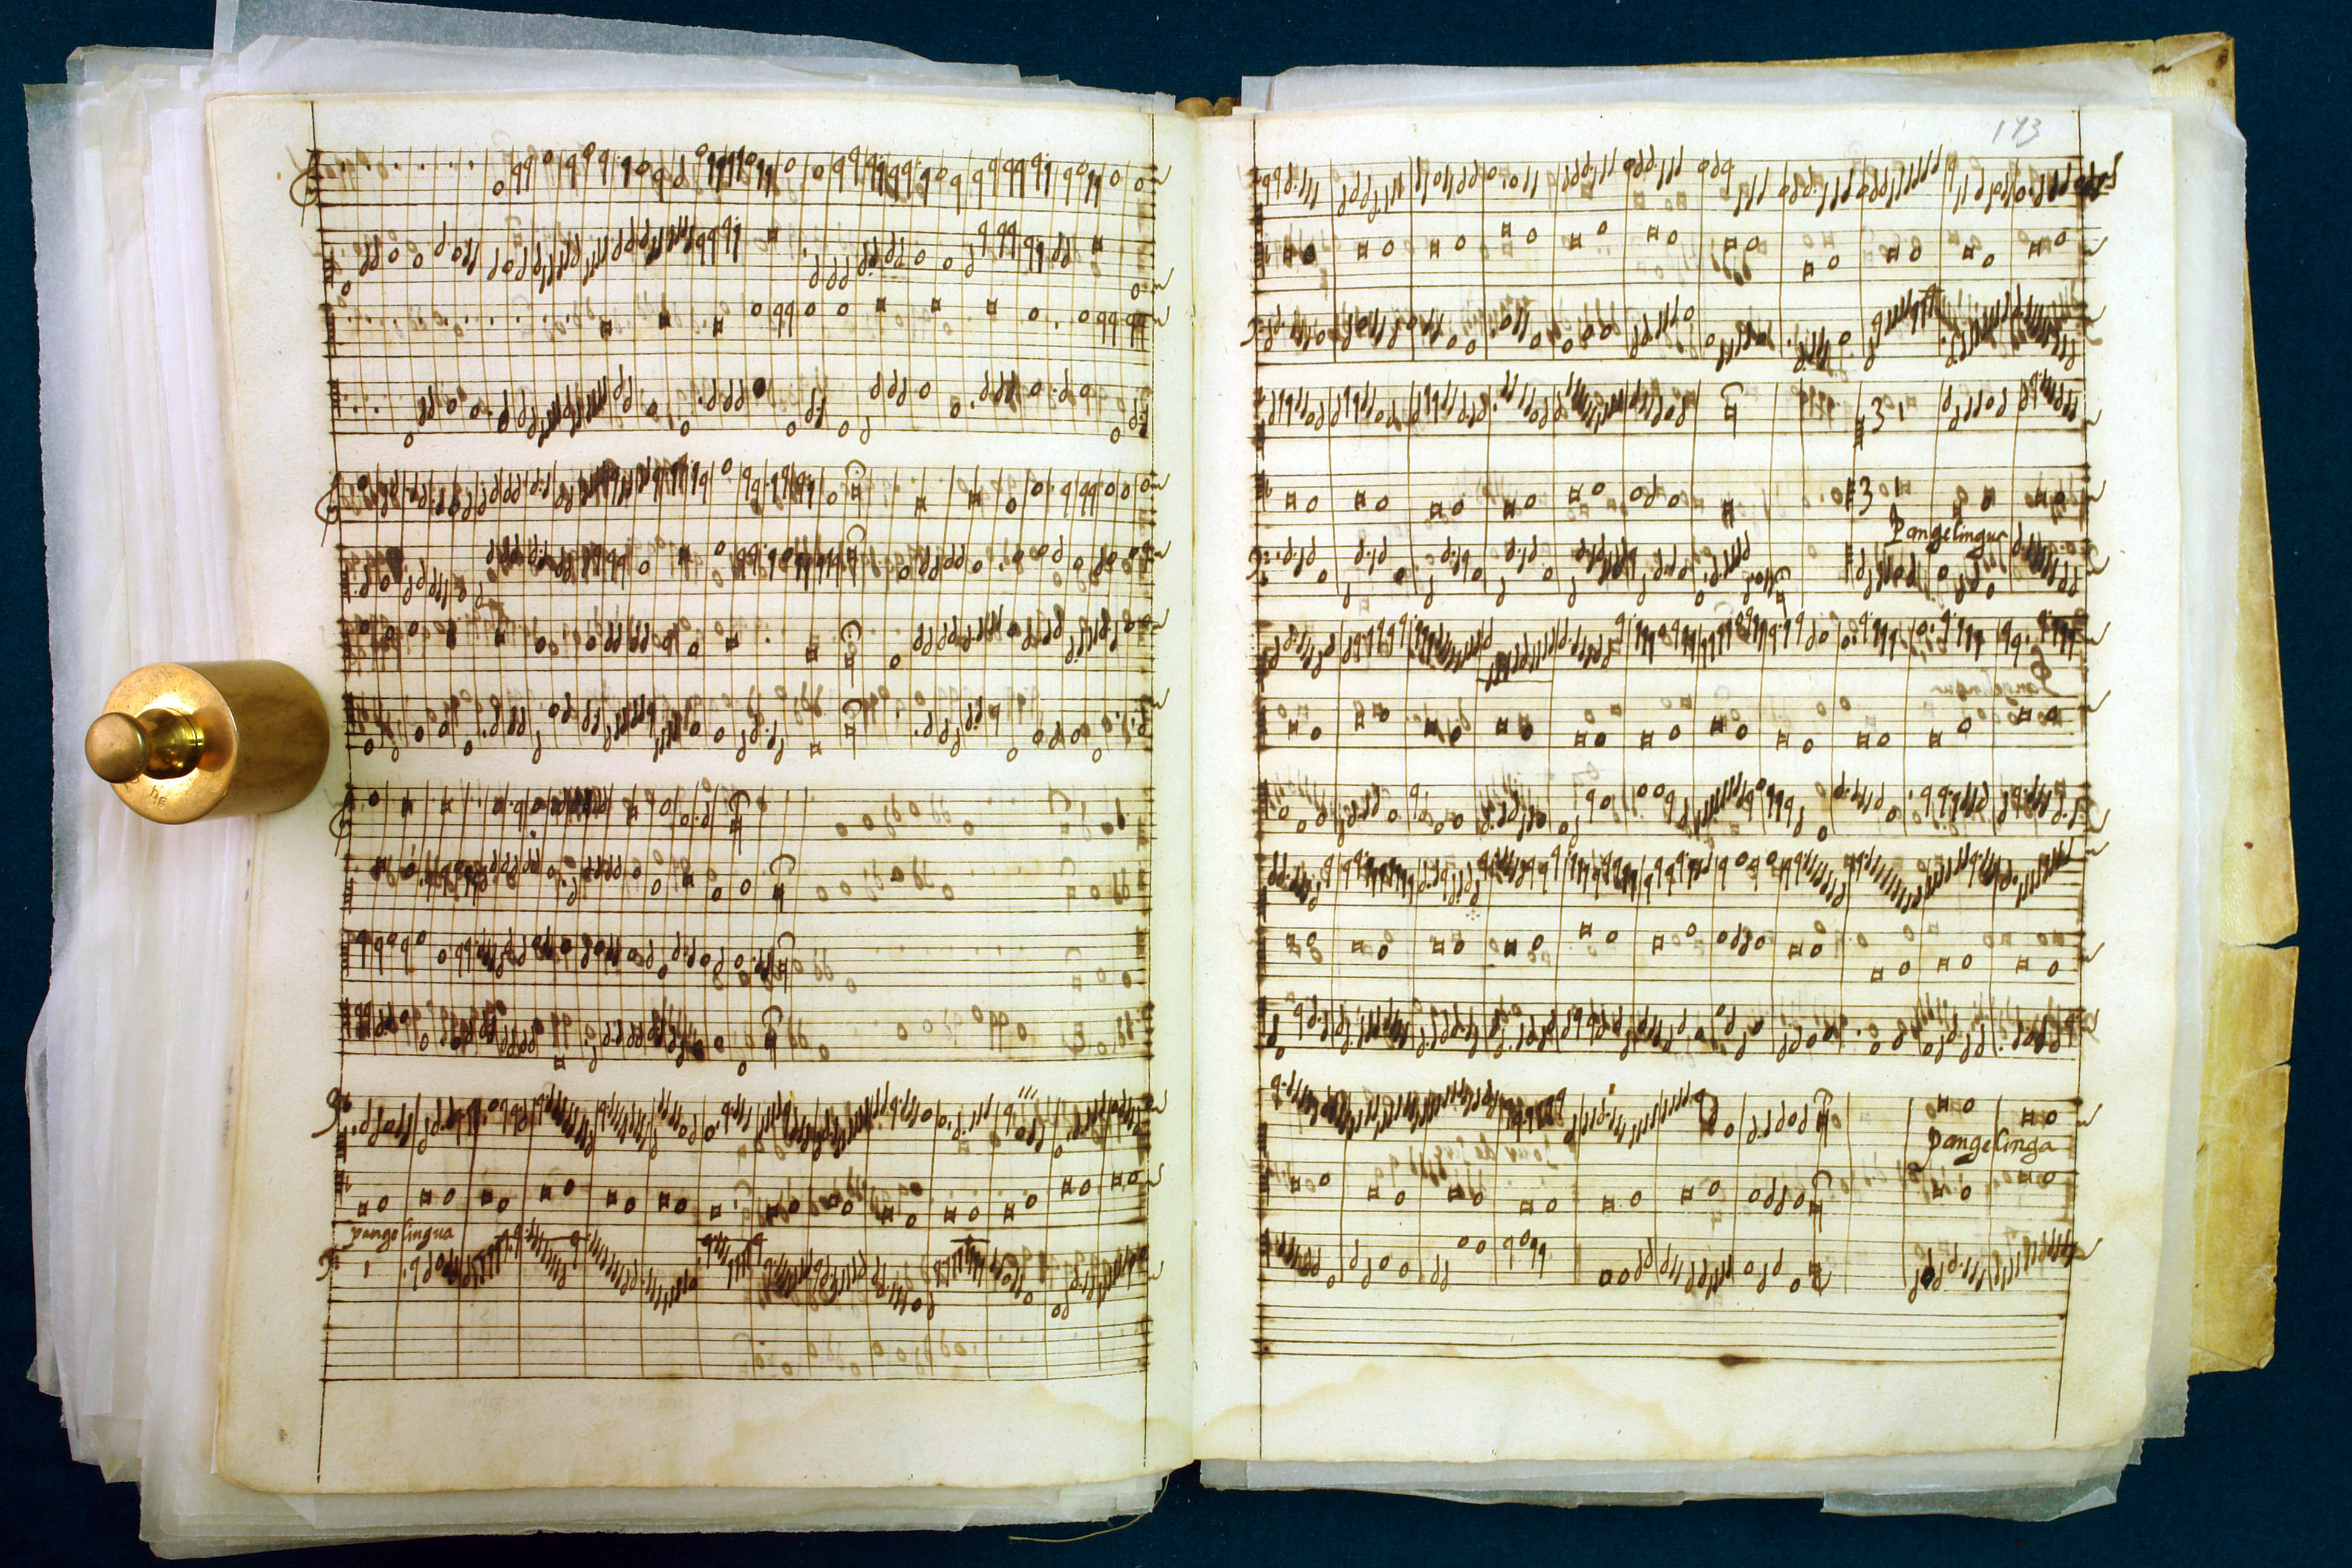 pange lingua
173
3 1
3 1
Pange lingua
pange linga